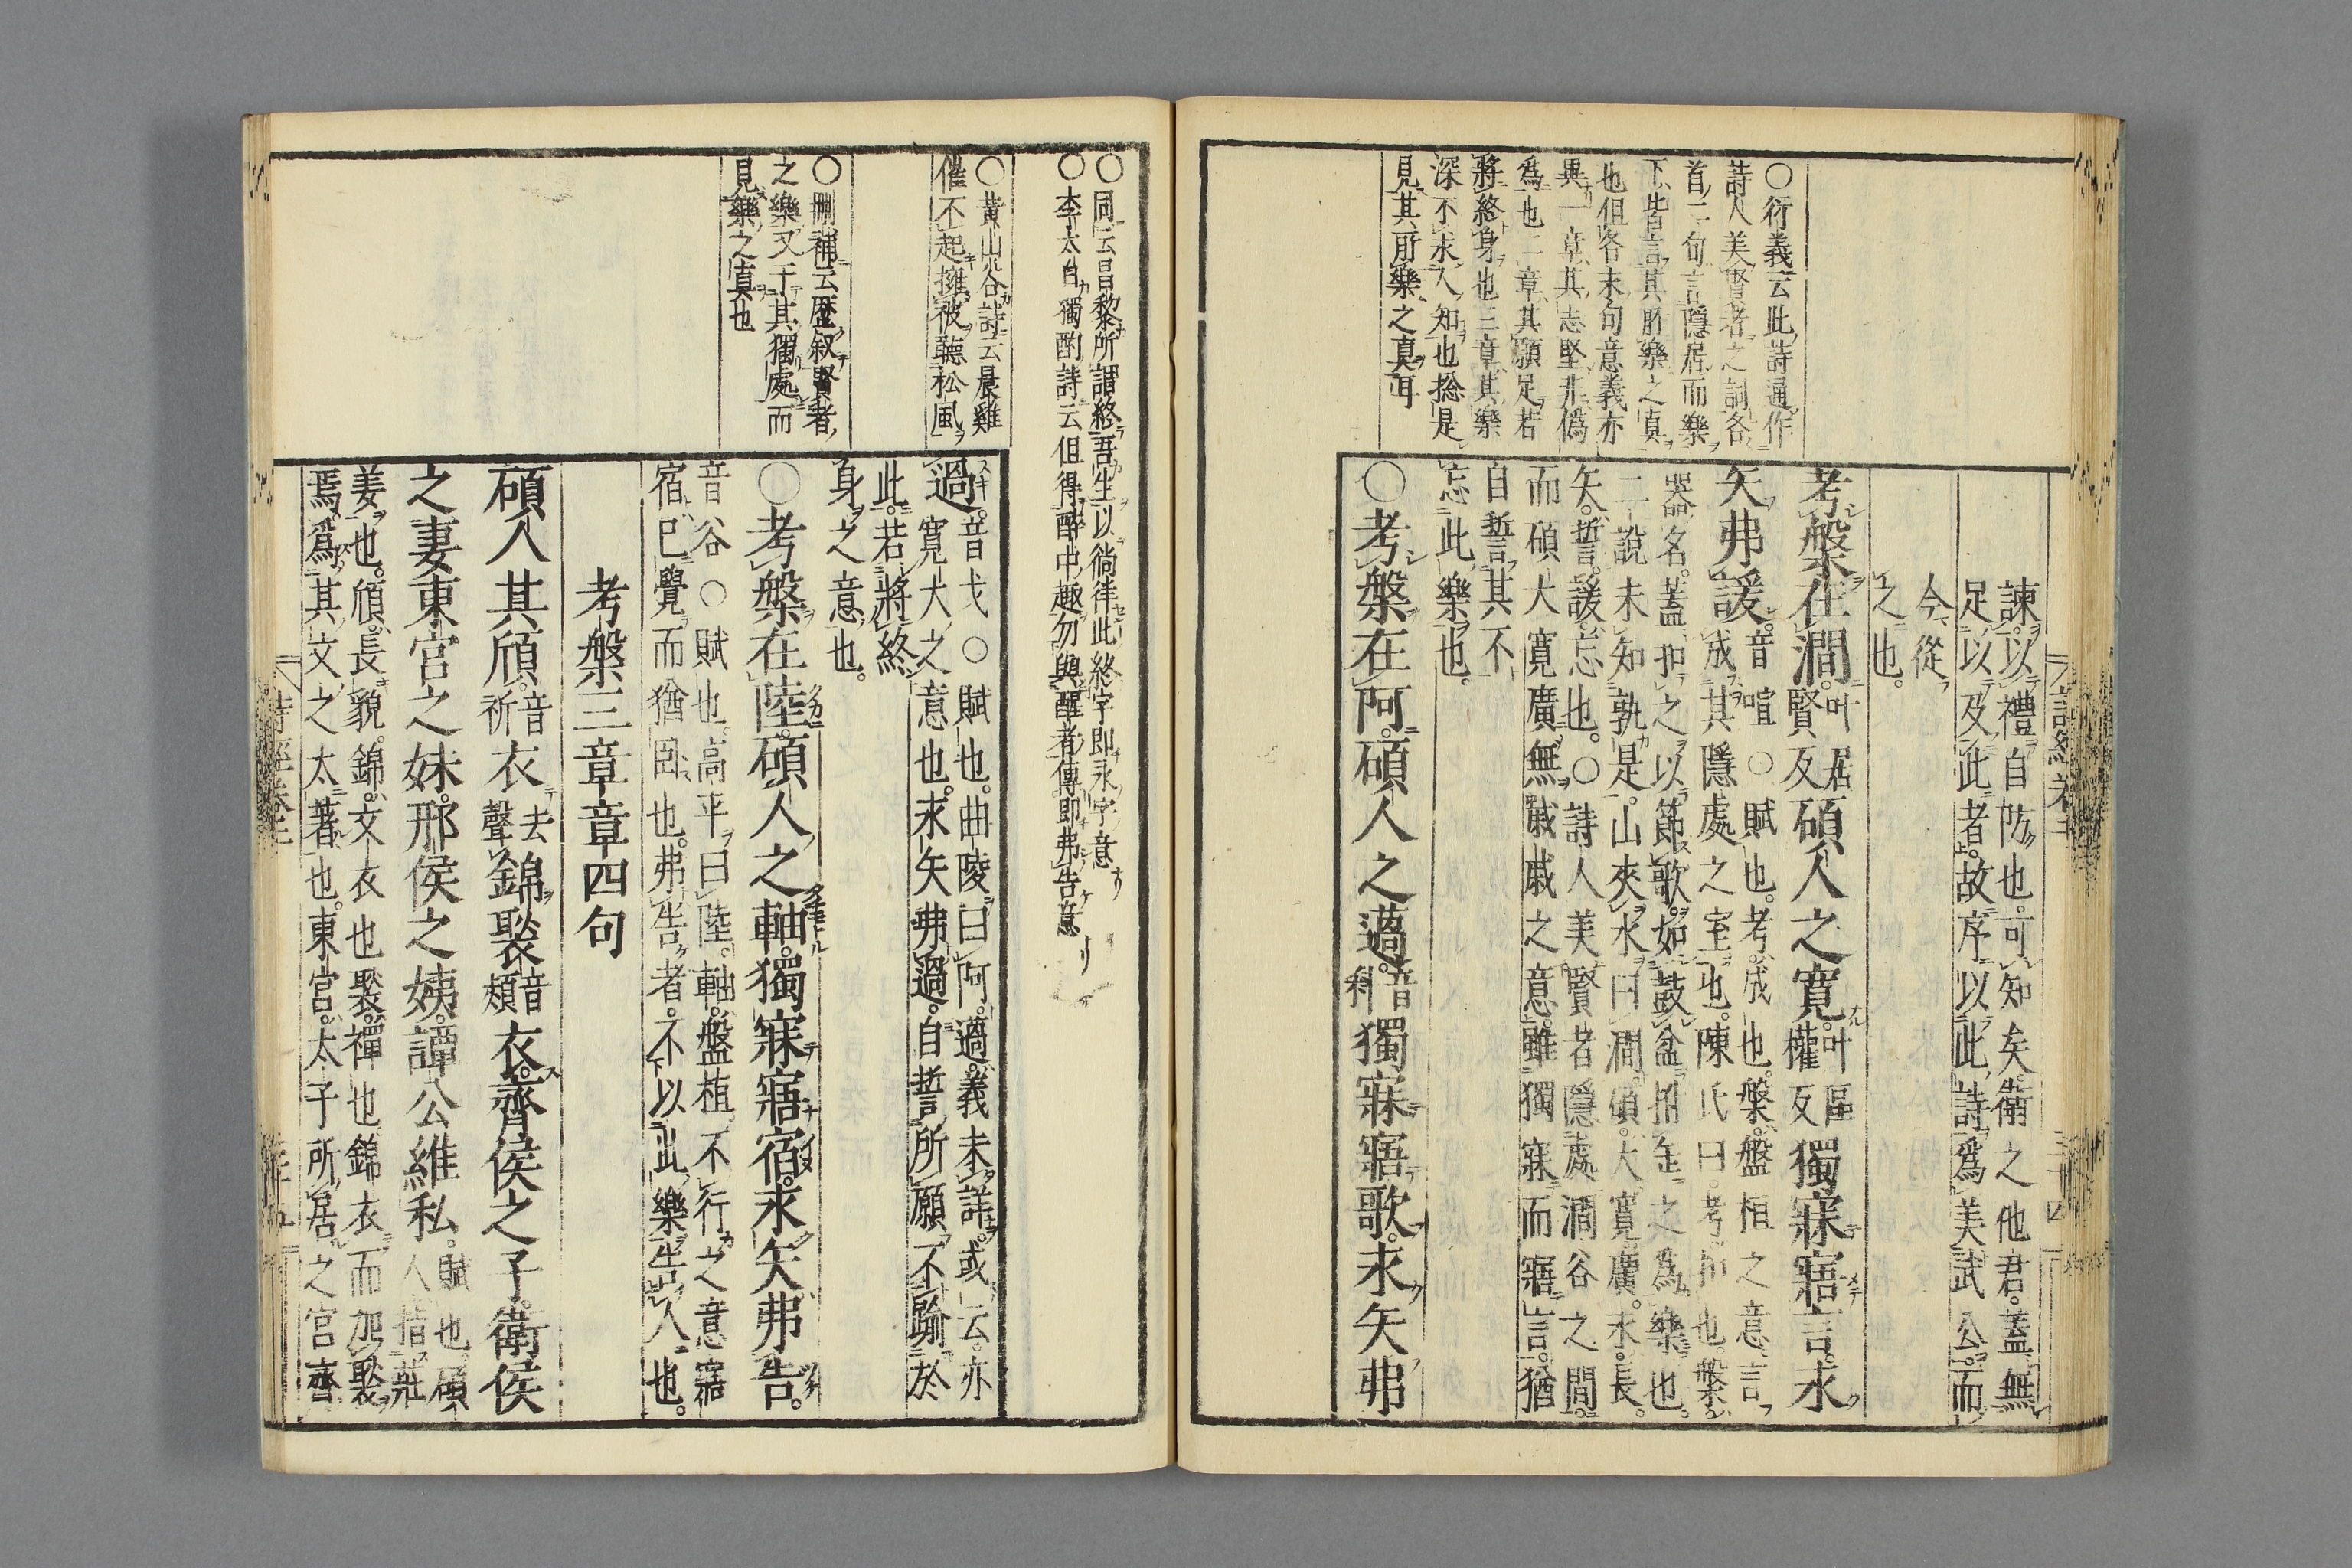 諫以禮自防也可知矣衛之他君蓋無
足以及此者故序以此詩爲美武公而
今從
之也
考槃在澗叶居賢反碩人之寬叶區權反獨寐寤言永
矢弗諼音喧○賦也考成也槃盤桓之意言
成其隱處之室也陳氏曰考扣也槃
器名蓋扣之以節歌如鼓盆拊缶之爲樂也
二說未知孰是山夾水曰澗碩大寬廣永長
矢誓諼忘也○詩人美賢者隱處澗谷之間
而碩大寬廣無戚戚之意雖獨寐而寤言猶
自誓其不
忘此樂也
○考槃在阿碩人之薖音科獨寐寤歌永矢弗
○衍義云此詩通作
詩人美賢者之詞各
首二句言隱居而樂
下皆言其所樂之真
也但各末句意義亦
異一章其志堅非僞
爲也二章其願足若
將終身也三章其樂
深不求人知也捴是
見其所樂之真耳
詩經卷二
○同云昌黎所謂終吾生以徜徉此終字即永字意
○李太白獨酌詩云但得醉中趣勿與醒者傳即弗告意
過音戈○賦也曲陵曰阿薖義未詳或云亦
寬大之意也永矢弗過自誓所願不踰於
此若將終
身之意也
○考槃在陸碩人之軸獨寐寤宿永矢弗告
音谷○賦也高平曰陸軸盤桓不行之意寤
宿已覺而猶臥也弗告者不以此樂告人也
考槃三章章四句
碩人其頎音祈衣去聲錦褧音熲衣齊侯之子衛侯
之妻東宮之妹邢侯之姨譚公維私賦也碩人指莊
姜也頎長貌錦文衣也褧襌也錦衣而加褧
焉爲其文之太著也東宮太子所居之宮齊
○黃山谷詩云晨雞
催不起擁被聽松風
○刪補云歷叙賢者
之樂又于其獨處而
見樂之真也
詩經卷二